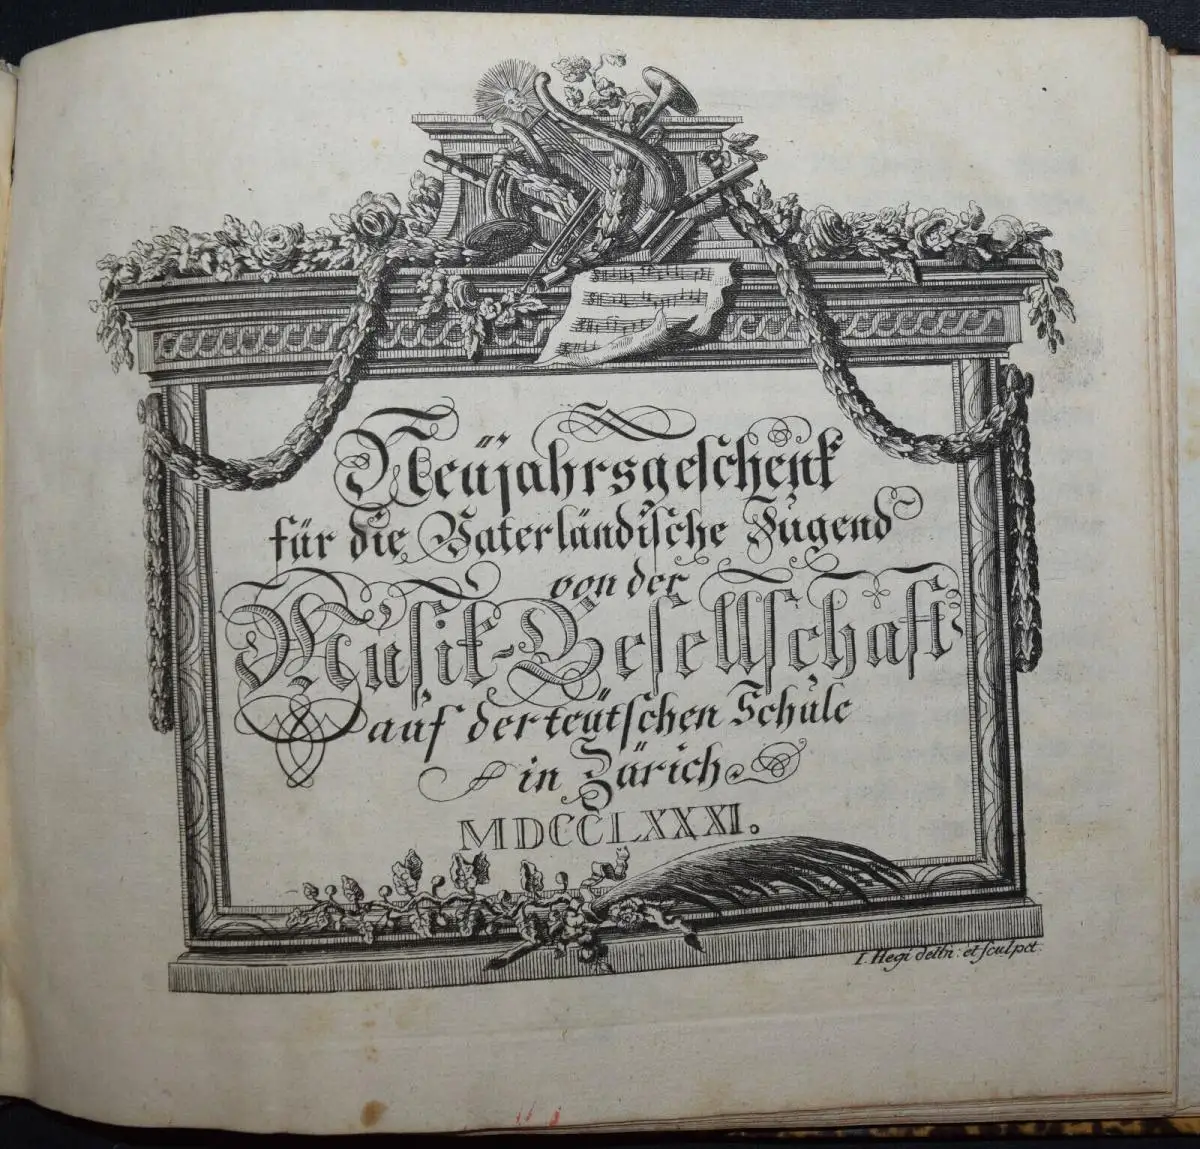 Neüjahrsgeschenk
für die Vaterländische Jugend
von der
Musik-Gesellschaft
auf der teütschen Schule
in Zürich
MDCCLXXXI.
I. Hegi delin: et sculpct.